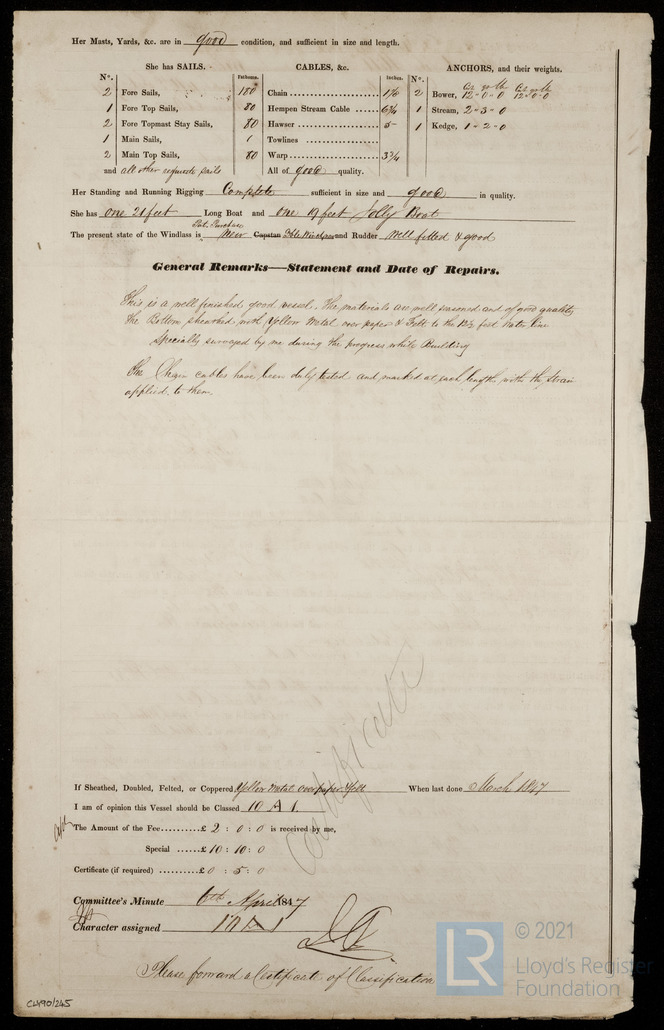 Her Masts, Yards, &c. are in good condition, and sufficient in size and length.
She has SAILS. CABLES, &c. ANCHORS, and their weights.
N°. Fathoms. Inches. N°.
2 Fore Sails, 180 Chain 2 Bower, 12-0-0 12-0-0
1 Fore Top Sails, 80 Hempen Stream Cable 6¾ 1 Stream, 2-3-0
2 Fore Topmast Stay Sails, 80 Hawser 5- 1 Kedge, 1-2-0
1 Main Sails, Towlines
2 Main Top Sails, 80 Warp 3¾
and all other requisite sails All of good quality.
Her Standing and Running Rigging Complete sufficient in size and good in quality.
She has one 21 feet Long Boat and one 19 feet Jolly Boat
Pat. Purchase
The present state of the Windlass is New Capstan and Rudder Well fitted & good
General Remarks—Statement and Date of Repairs.
This is a well finished good vessel. The materials are well seasoned and of good quality
The Bottom sheathed with Yellow Metal over paper & Felt to the 12½ feet Water line
Specially surveyed by me during the progress while Building
The Chain cables have been duly tested and marked at each length with the strain
applied to them.
Certificate
If Sheathed, Doubled, Felted, or Coppered Yellow Metal over paper & felt When last done March 1847
I am of opinion this Vessel should be Classed 10 A 1
The Amount of the Fee..........£ 2 : 0 : 0 is received by me,
Special ......£ 10 : 10 : 0
Certificate (if required) ..........£ 0 : 5 : 0
Committee's Minute 6th April 1847
Character assigned 10 A 1
Please forward a Certificate of Classification
LR © 2021
Lloyd's Register
Foundation